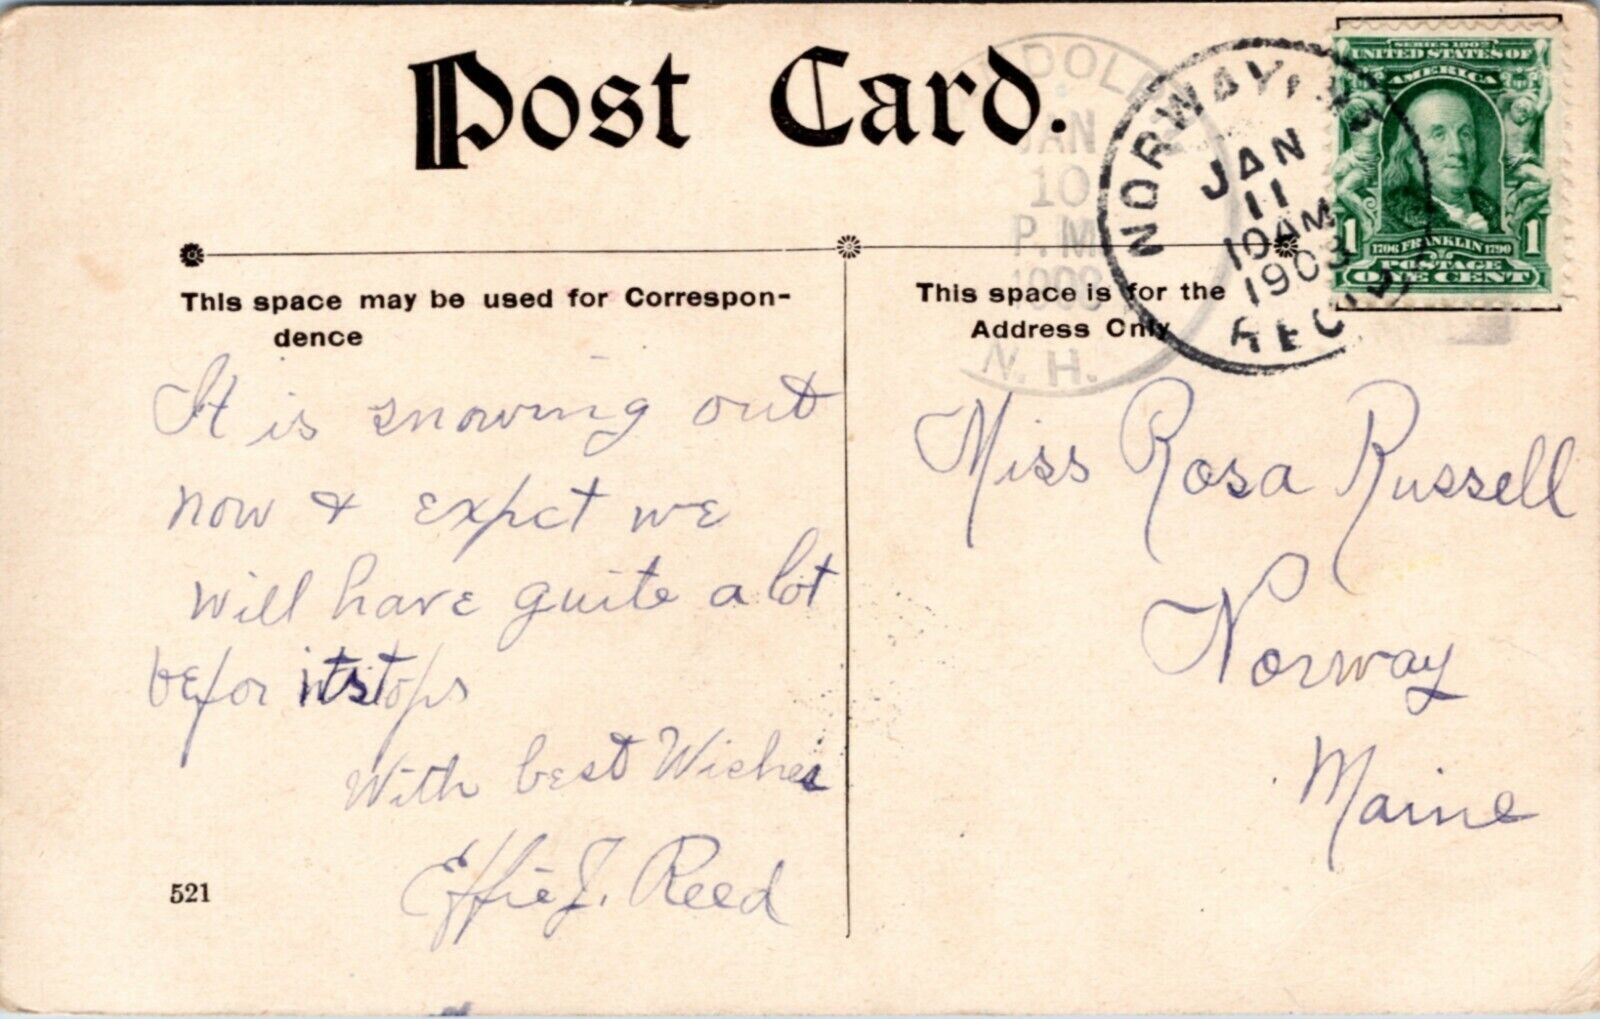 Post Card.
JAN
10
P.M.
1908
N.H.
NORWAY,
JAN
11
10 AM
1908
REC'D
SERIES 1902
UNITED STATES OF
AMERICA
1 1706 FRANKLIN 1790 1
POSTAGE
ONE CENT
This space may be used for Correspon-
dence
This space is for the
Address Only
It is snowing out
now & expct we
will have quite a lot
befor it stops
With best Wishes
Effie J. Reed
521
Miss Rosa Russell
Norway
Maine